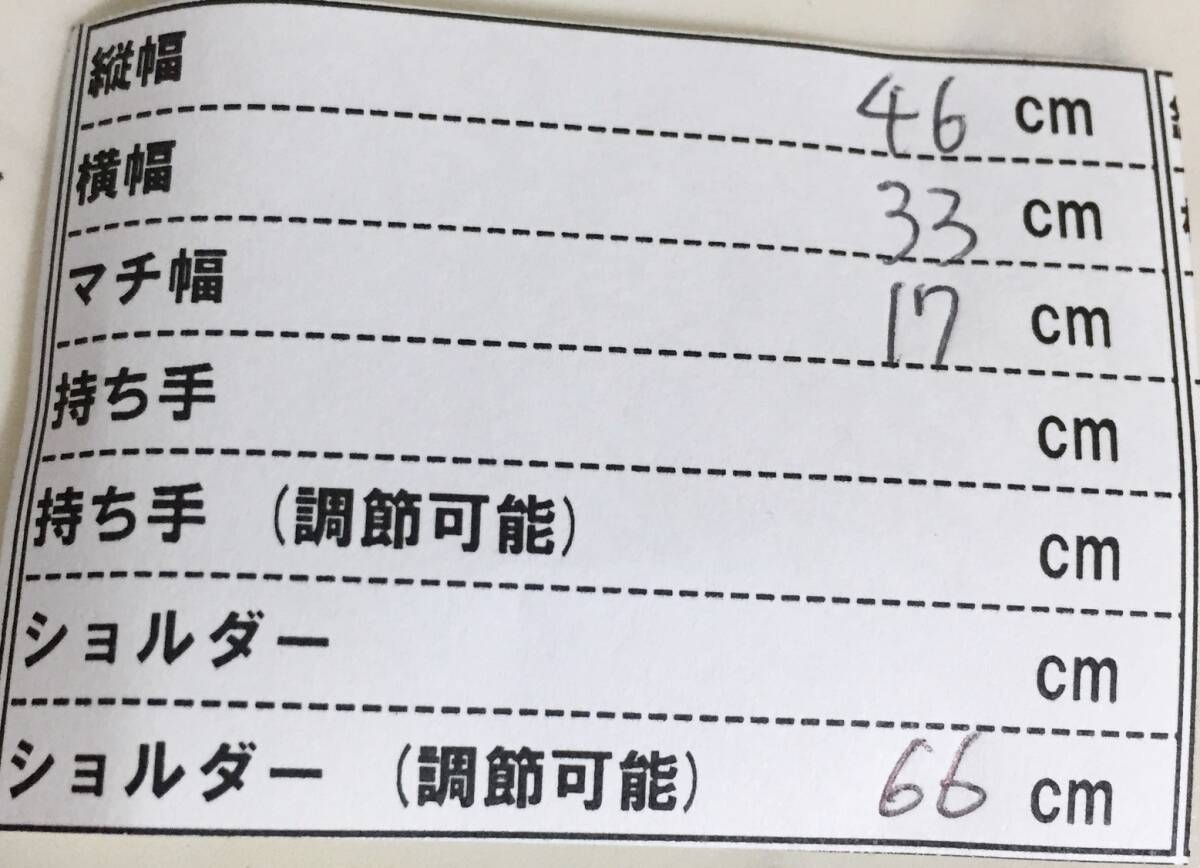 縦幅 46 cm
横幅 33 cm
マチ幅 17 cm
持ち手 cm
持ち手 (調節可能) cm
ショルダー cm
ショルダー (調節可能) 66 cm